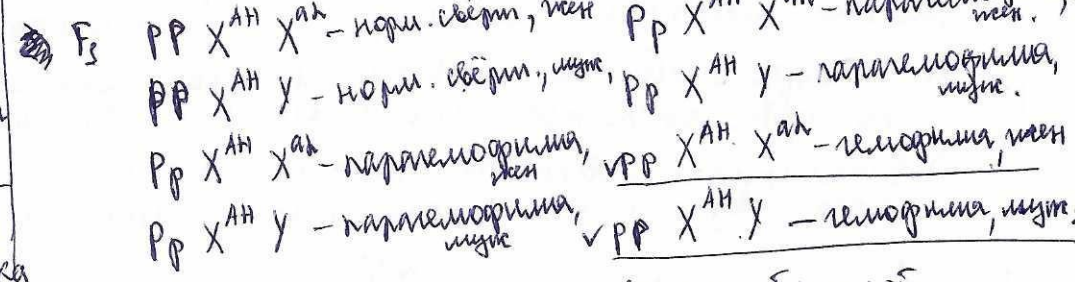 F₃ PP X^AH X^ah – норм. свёрт, жен Pp X^AH X – парагемо жен.,
PP X^AH Y – норм. свёрт., муж, Pp X^AH Y – парагемофилия, муж.
Pp X^AH X^ah – парагемофилия, жен ✓pp X^AH X^ah – гемофилия, жен
Pp X^AH Y – парагемофилия, муж ✓pp X^AH Y – гемофилия, муж.
ка